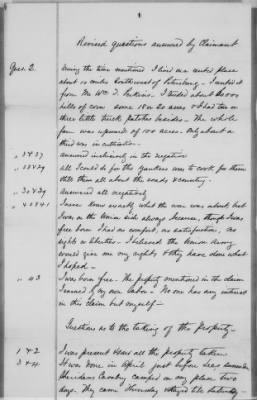 Revised questions answered by Claimant
Ques. 2. During the time mentioned I lived on a rented place
about 10 miles Southwest of Petersburg - I rented it
from Mr Wm. J. Perkins. I tended about 40.000
hills of corn some 18 or 20 acres & I had two or
three little truck patches besides - The whole
farm was upward of 100 acres. Only about a
third was in cultivation.
answered inclusively in the negative
all I could do for the yankees was to cook for them
& tell them all about the roads & country.
answered all negatively
I never knew exactly what the war was about but
I was on the Union side always because, though I was
free born I had no comfort, no satisfaction, no
rights or liberties - I believed the Union Army
would give me my rights & they have done what
I hoped -
" 43 I was born free - The property mentioned in the claim
I earned by my own labor - No one has any interest
in this claim but myself -
Questions as to the taking of the property -
1 & 2 I was present & saw all the property taken
3 & 4 It was done in April just before Lees surrender
Sheridans Cavalry camped on my place two
days. They came Thursday & stayed till Saturday -